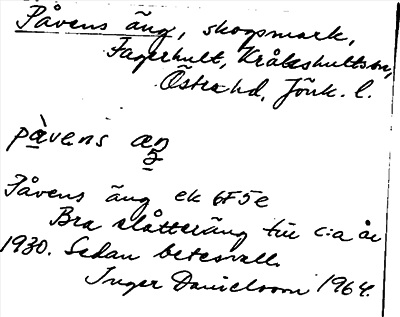 Påvens äng, skogsmark,
Fagerhult, Kråkshults sn,
Östra hd, Jönk. l.
pàvens æŋ
Påvens äng ek 6F5e
Bra slåtteräng till c:a år
1930. Sedan betesvall.
Inger Danielsson 1964.